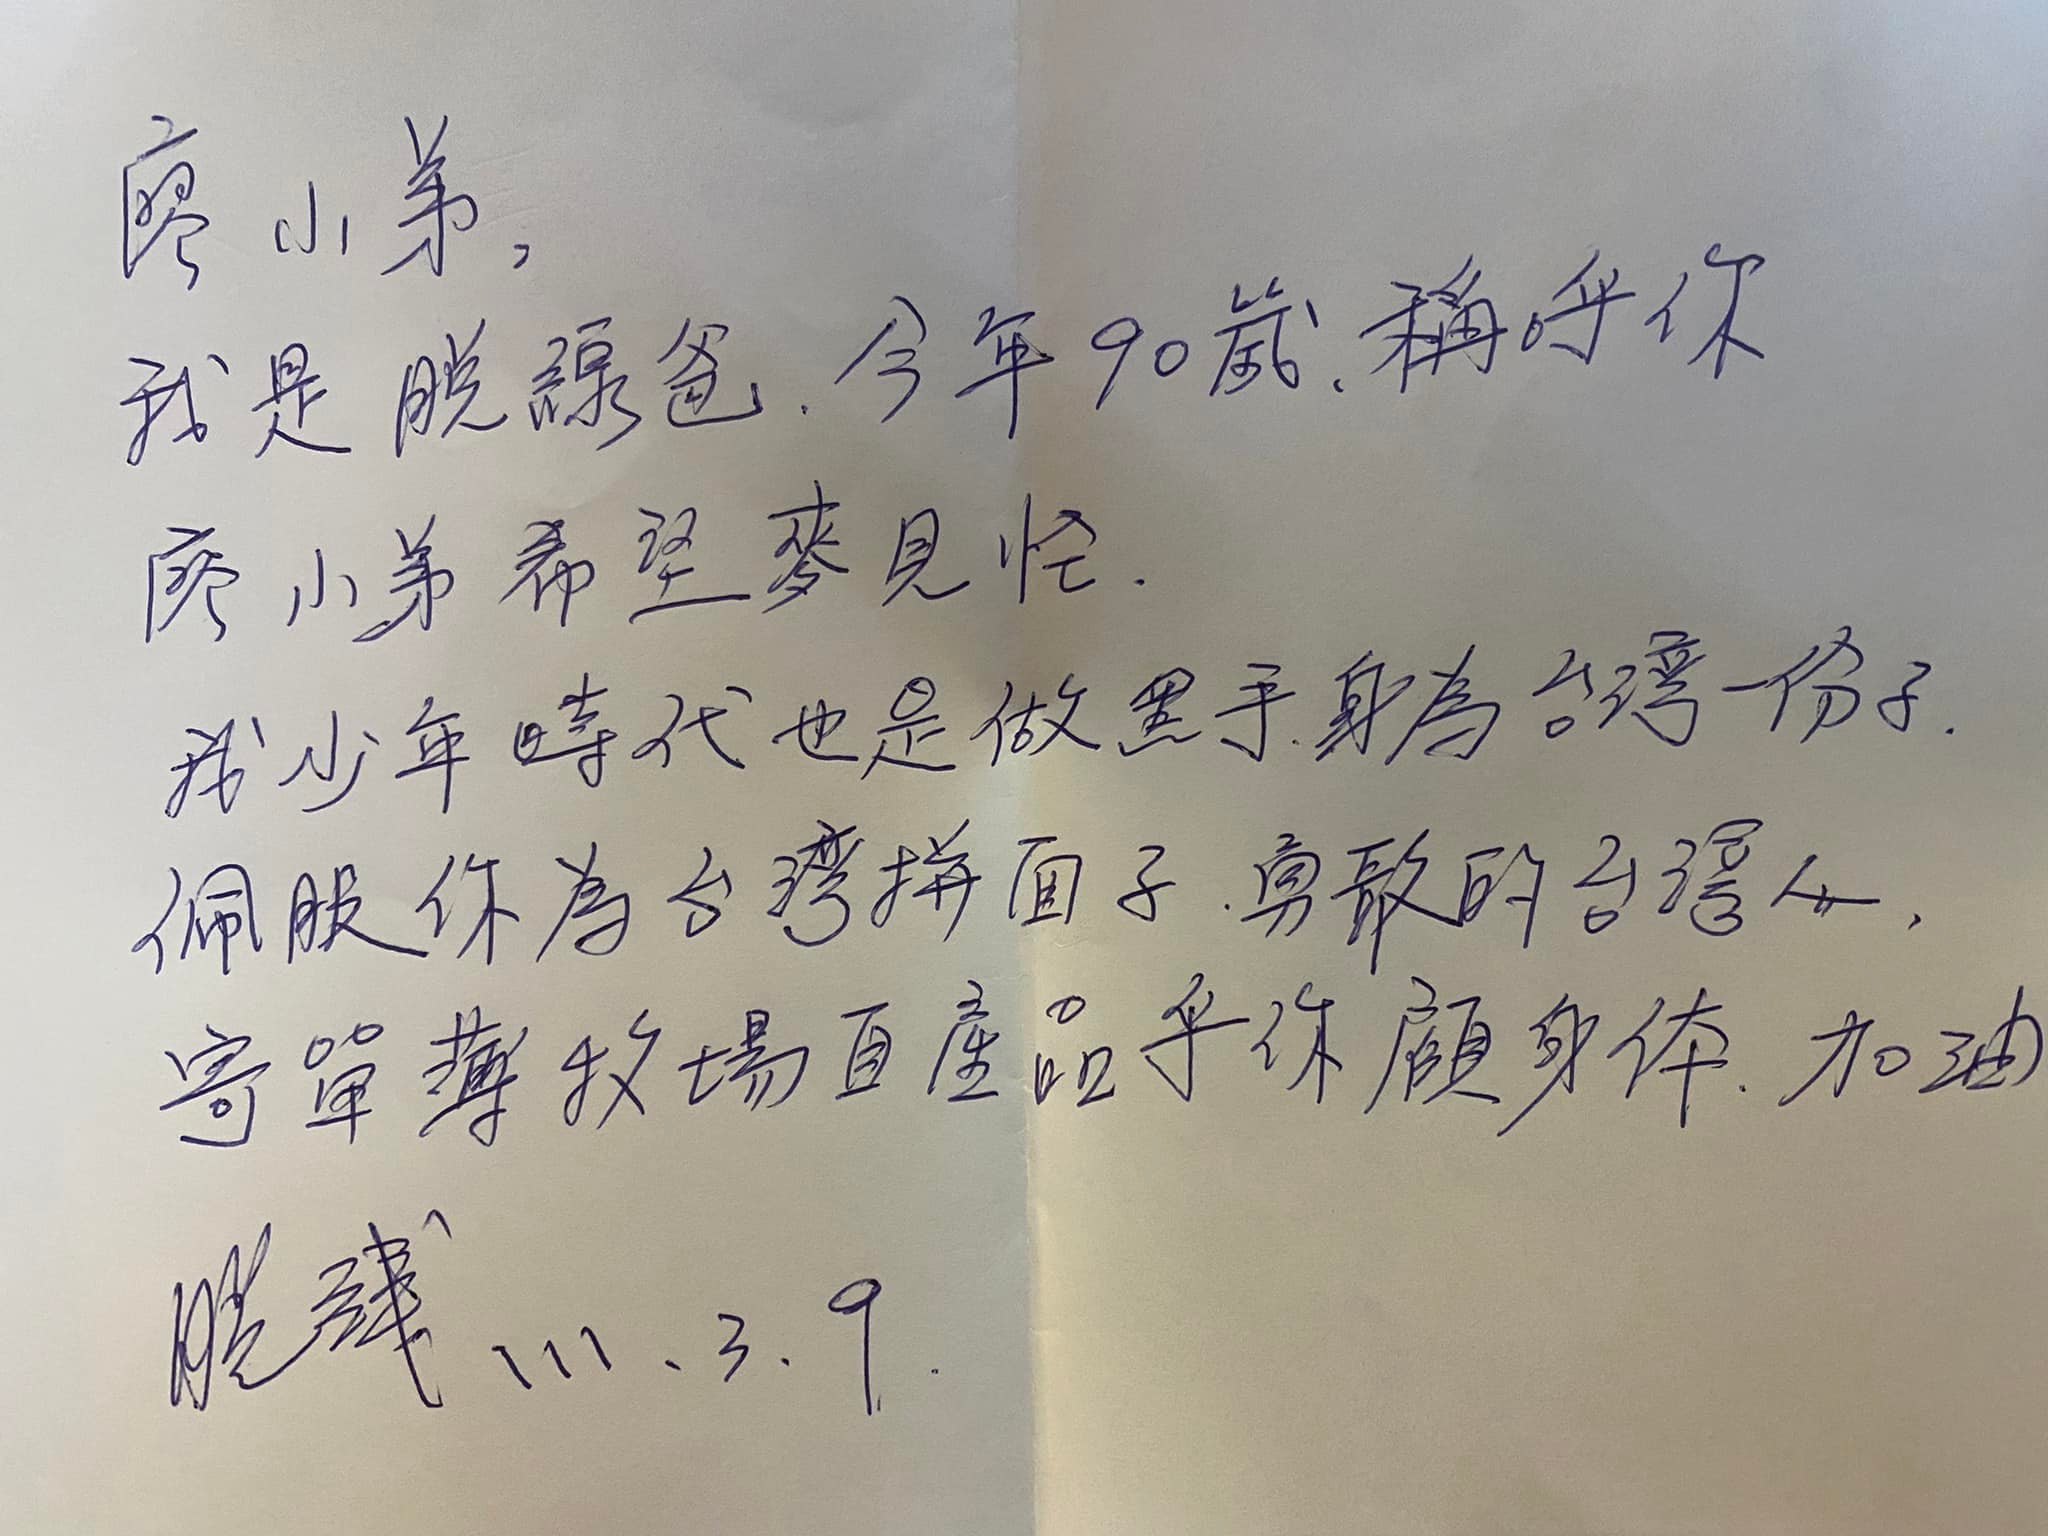 廖小弟,
我是脫線爸.今年90歲.稱呼你
廖小弟希望麥見怪.
我少年時代也是做黑手.身為台灣一份子.
佩服你為台灣拼面子.勇敢的台灣人.
寄單薄牧場直產品乎你顧身体.加油
脫線 111.3.9.